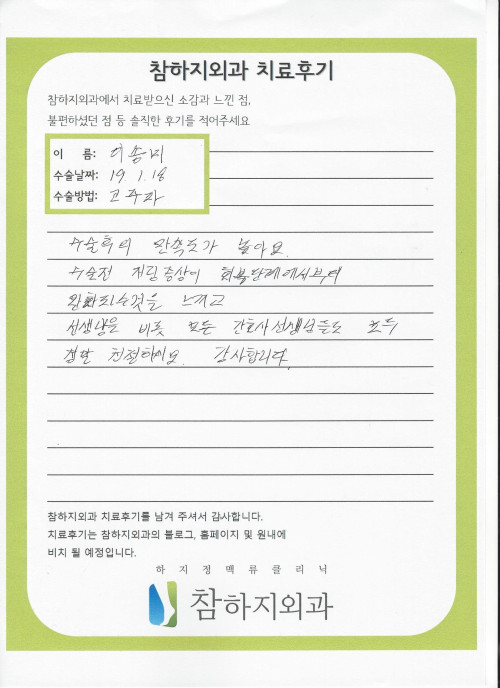 참하지외과 치료후기
참하지외과에서 치료받으신 소감과 느낀 점,
불편하셨던 점 등 솔직한 후기를 적어주세요
이 름: 이송미
수술날짜: 19 1. 18
수술방법: 고주파
수술후의 만족도가 높아요.
수술전 저림증상이 회복단계에서부터
완화되는것을 느끼고
선생님을 비롯 모든 간호사선생님들도 모두
정말 친절하세요. 감사합니다.
참하지외과 치료후기를 남겨 주셔서 감사합니다.
치료후기는 참하지외과의 블로그, 홈페이지 및 원내에
비치 될 예정입니다.
하 지 정 맥 류 클 리 닉
참하지외과